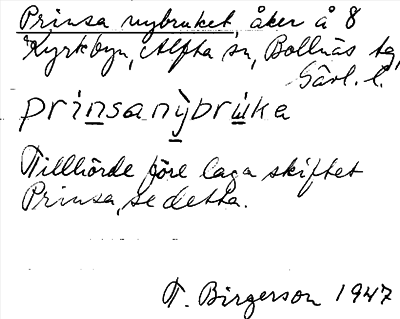 Prinsa nybruket, åker å 8
Kyrkbyn, Alfta sn, Bollnäs tg,
Gävl. l.
prinsanỳbrùka
Tillhörde före laga skiftet
Prinsa, se detta.
T. Birgerson 1947